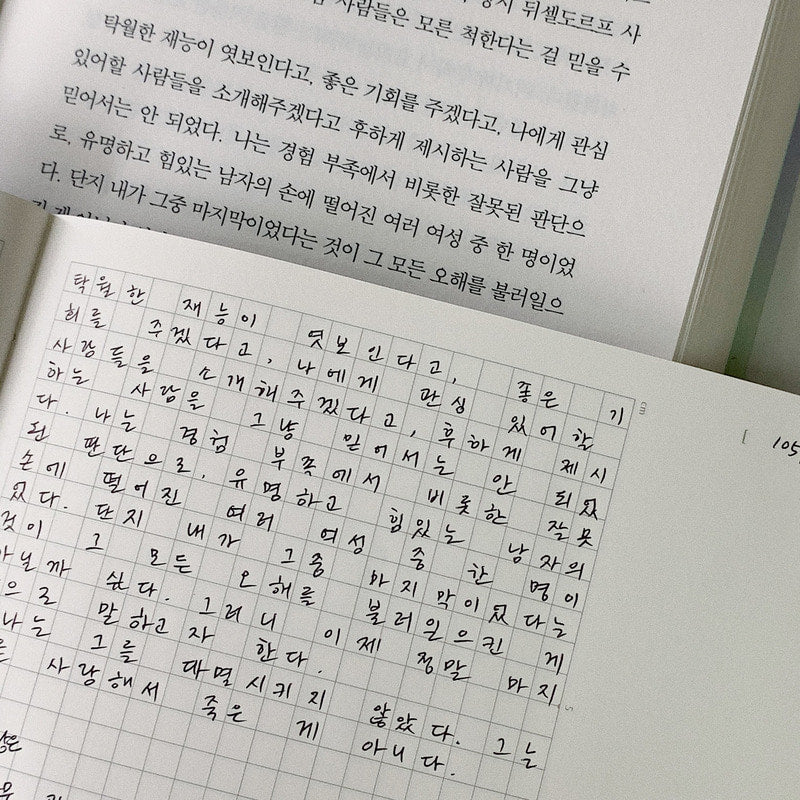 뒤셀도르프 사
사람들은 모른 척한다는 걸 믿을 수
탁월한 재능이 엿보인다고, 좋은 기회를 주겠다고, 나에게 관심
있어할 사람들을 소개해주겠다고 후하게 제시하는 사람을 그냥
믿어서는 안 되었다. 나는 경험 부족에서 비롯한 잘못된 판단으
로, 유명하고 힘있는 남자의 손에 떨어진 여러 여성 중 한 명이었
다. 단지 내가 그중 마지막이었다는 것이 그 모든 오해를 불러일으
탁월한 재능이 엿보인다고, 좋은 기
회를 주겠다고, 나에게 관심 있어할
사람들을 소개해주겠다고, 후하게 제시
하는 사람을 그냥 믿어서는 안 되었
다. 나는 경험 부족에서 비롯한 잘못
된 판단으로, 유명하고 힘있는 남자의
손에 떨어진 여러 여성 중 한 명이
었다. 단지 내가 그중 마지막이었다는
것이 그 모든 오해를 불러일으킨 게
아닐까 싶다. 그러니 이제 정말 마지
으로 말하고자 한다.
나는 그를 대멸시키지 않았다. 그는
사랑해서 죽은 게 아니다.
105